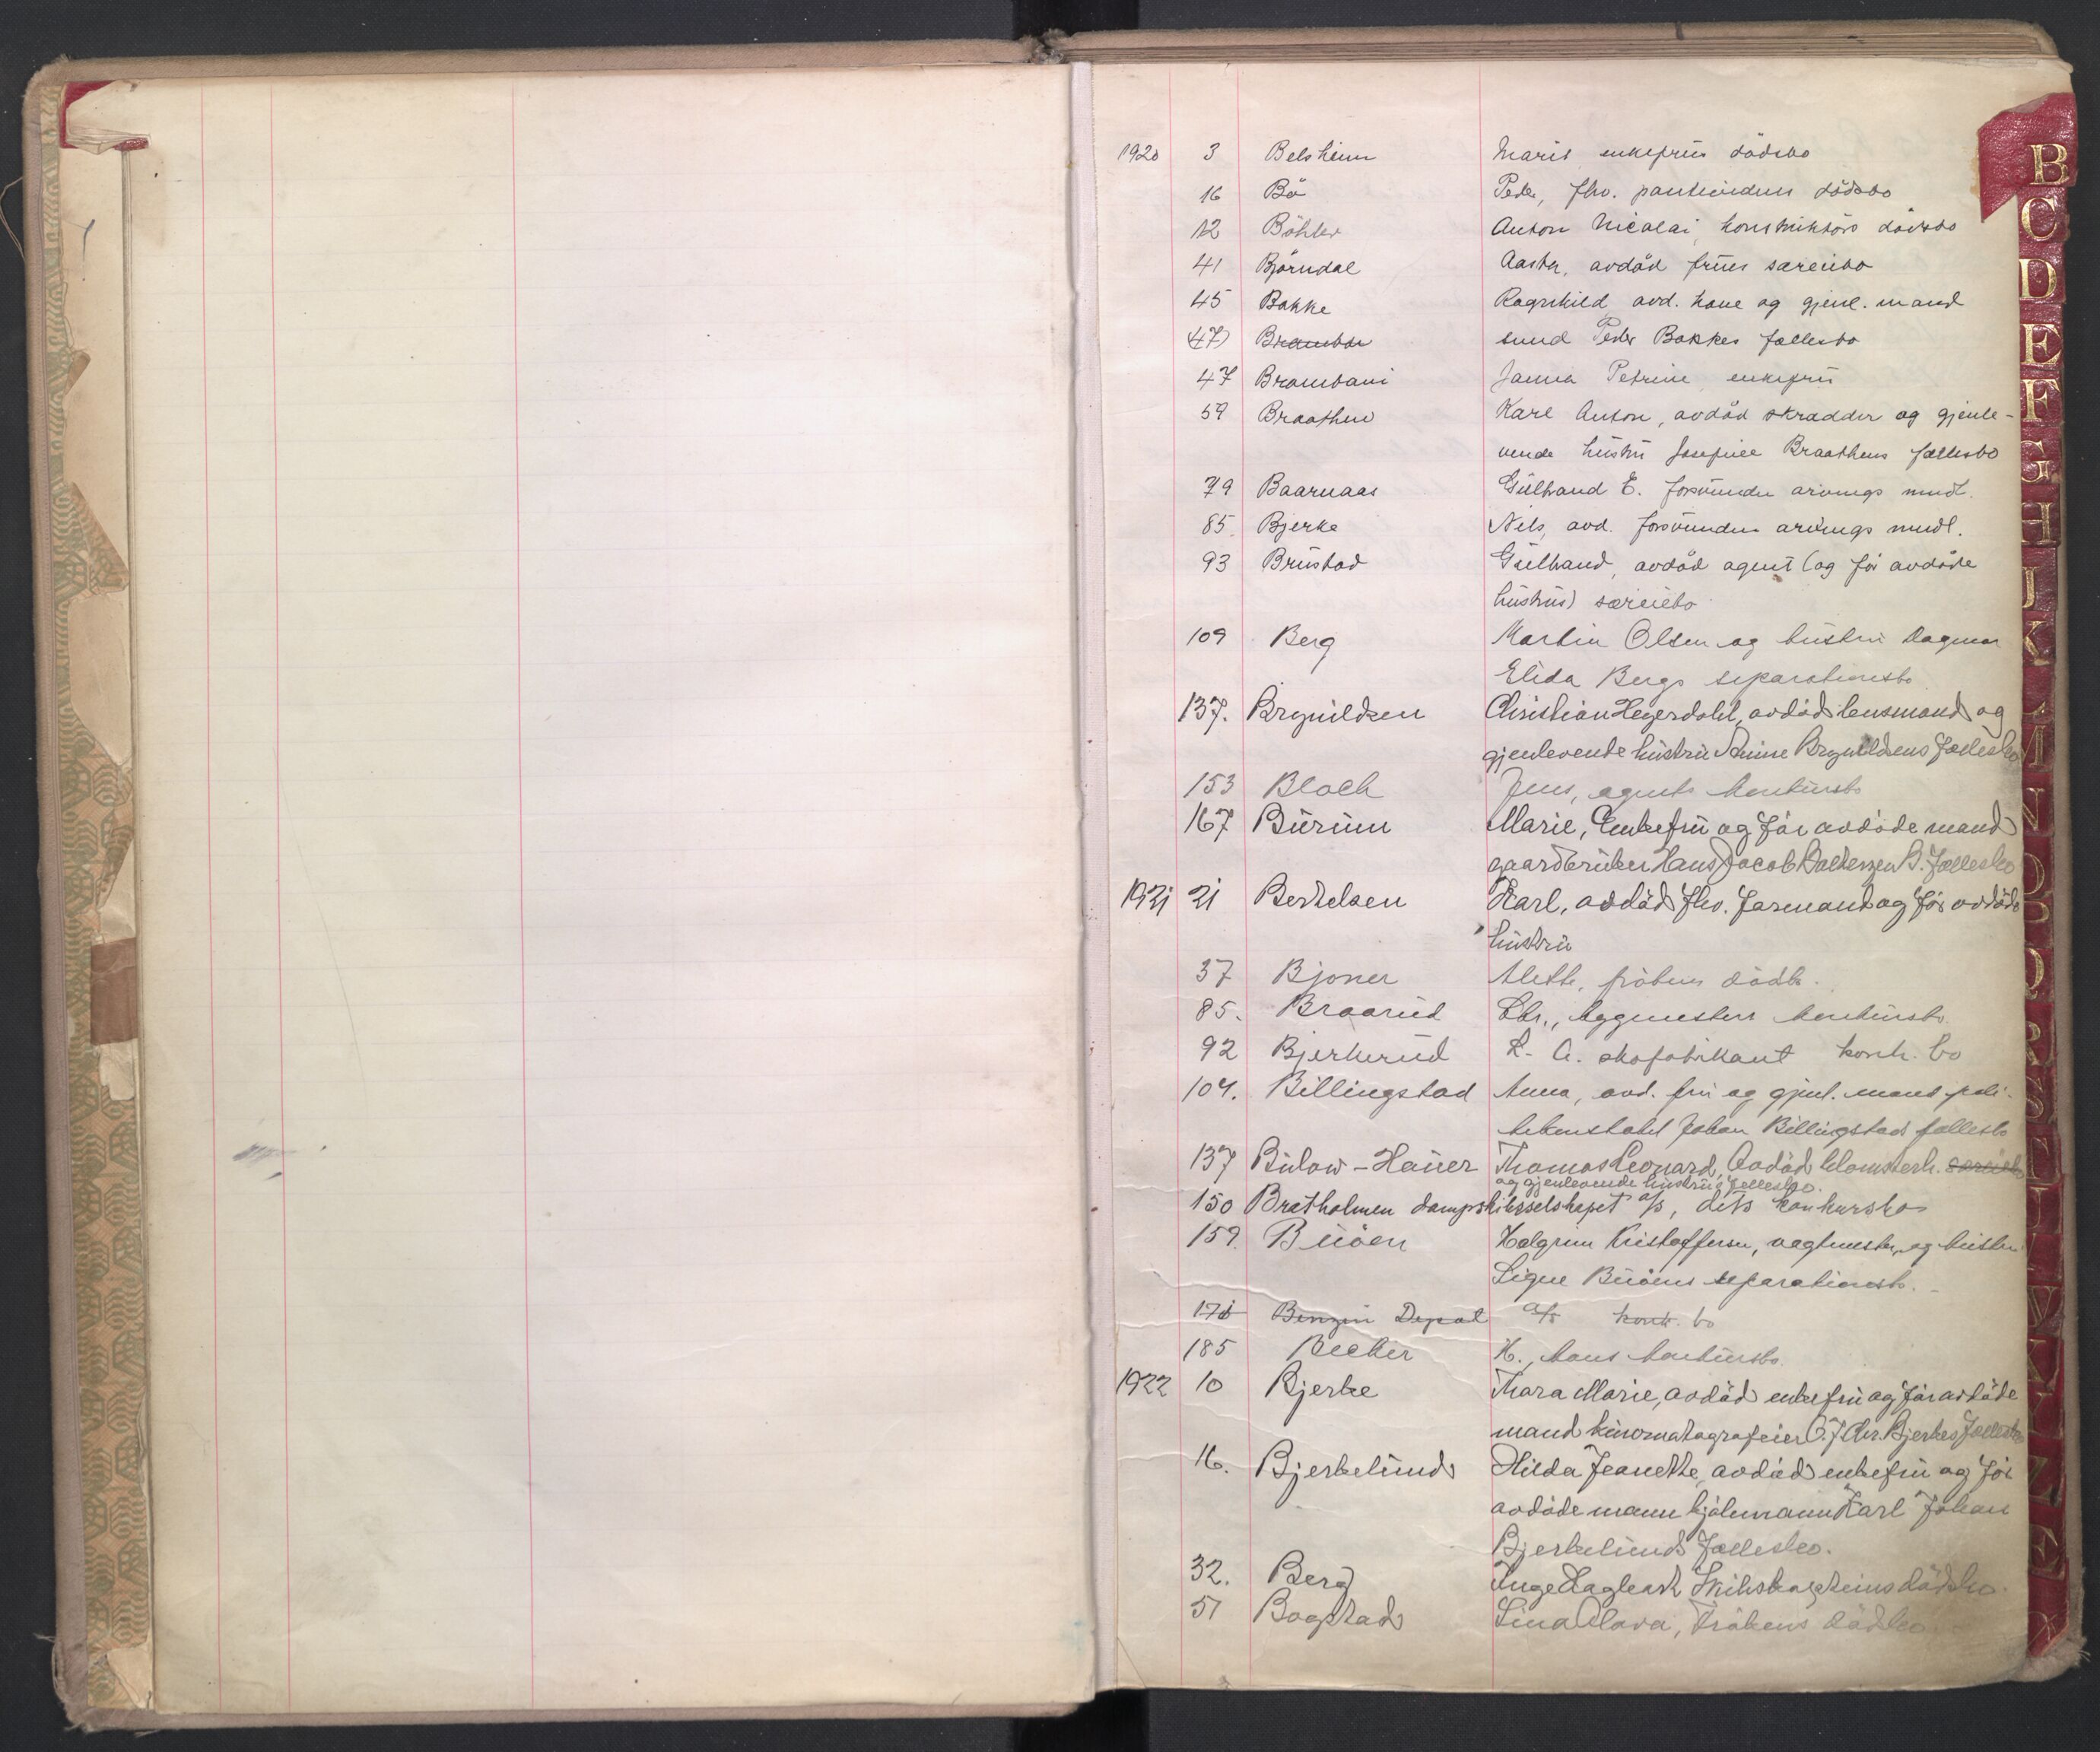 1920 3 Belsheim Maries enkefrus dödsbo
16 Bö Peder, fhv. dödsbo
12 Böhler Anton Nicolai, konstruktörs dödsbo
41 Björndal Aasta, avdöd frues særeiebo
45 Bakke Ragnhild avd. kone og gjenl. mand
(47) Brambani smed Peder Bakkes fællesbo
47 Brambani Janna Petrine enkefru
59 Braathen Karl Anton, avdöd skrædder og gjenle-
vende hustru Josefine Braathens fællesbo
79 Baarnaas Gulbrand E. forsvunden arvings midl.
85. Bjerke Nils, avd. forsvunden arvings midl.
93 Brustad Gulbrand, avdöd agent (og för avdöde
hustrus) særeiebo
109 Berg Martin Olsen og hustru Dagmar
Elida Bergs separationsbo
137. Brynildsen Christian Heyerdahl, avdöd lensmand og
gjenlevende hustru Anine Brynildsens Fællesbo
153 Bloch Jens, agents konkursbo
167 Burum Marie, Enkefru og för avdöde mand
gaardbruker Hans Jacob B. Fællesbo
1921 21 Bertelsen Karl, avdöd fhv. Formand og för avdöde
hustru
37 Bjoner Alette, frökens dödsbo.
85. Braarud Chr., byggmesters konkursbo
92 Bjerkerud K. A. skofabrikant konk. bo
104. Billingstad Anna, avd. fru og gjenl. mands poli-
tikonstabel Johan Billingstads fællesbo
137 Bülow-Hauer Thomas Leonard, Avdöd blomsterh. særeiebo
og gjenlevende hustrus fællesbo.
150 Bratholmen dampskibsselskapet A/s, dets konkursbo
159. Buöen Halgrim Kristoffersen, vagtmester, og hustru
Signe Buöens separationsbo.
178 Benzin Depot A/S konk. bo
185 Becker H., hans konkursbo
1922 10 Bjerke Thara Marie, avdöd enkefru og för avdöde
mand kinomatografeier O. J. Chr. Bjerkes Fællesbo
16. Bjerkelund Hilda Jeanette, avdöd enkefru og för
avdöde mann hjölmann Karl Johan
Bjerkelunds Fællesbo.
32. Berg Inge dödsbo.
51 Bogstad Lina Clara, Frökens dödsbo
B
C
D
E
F
G
H
J
K
L
M
N
O
P
Q
R
S
T
U
V
X
Y
Z
Æ
Ø